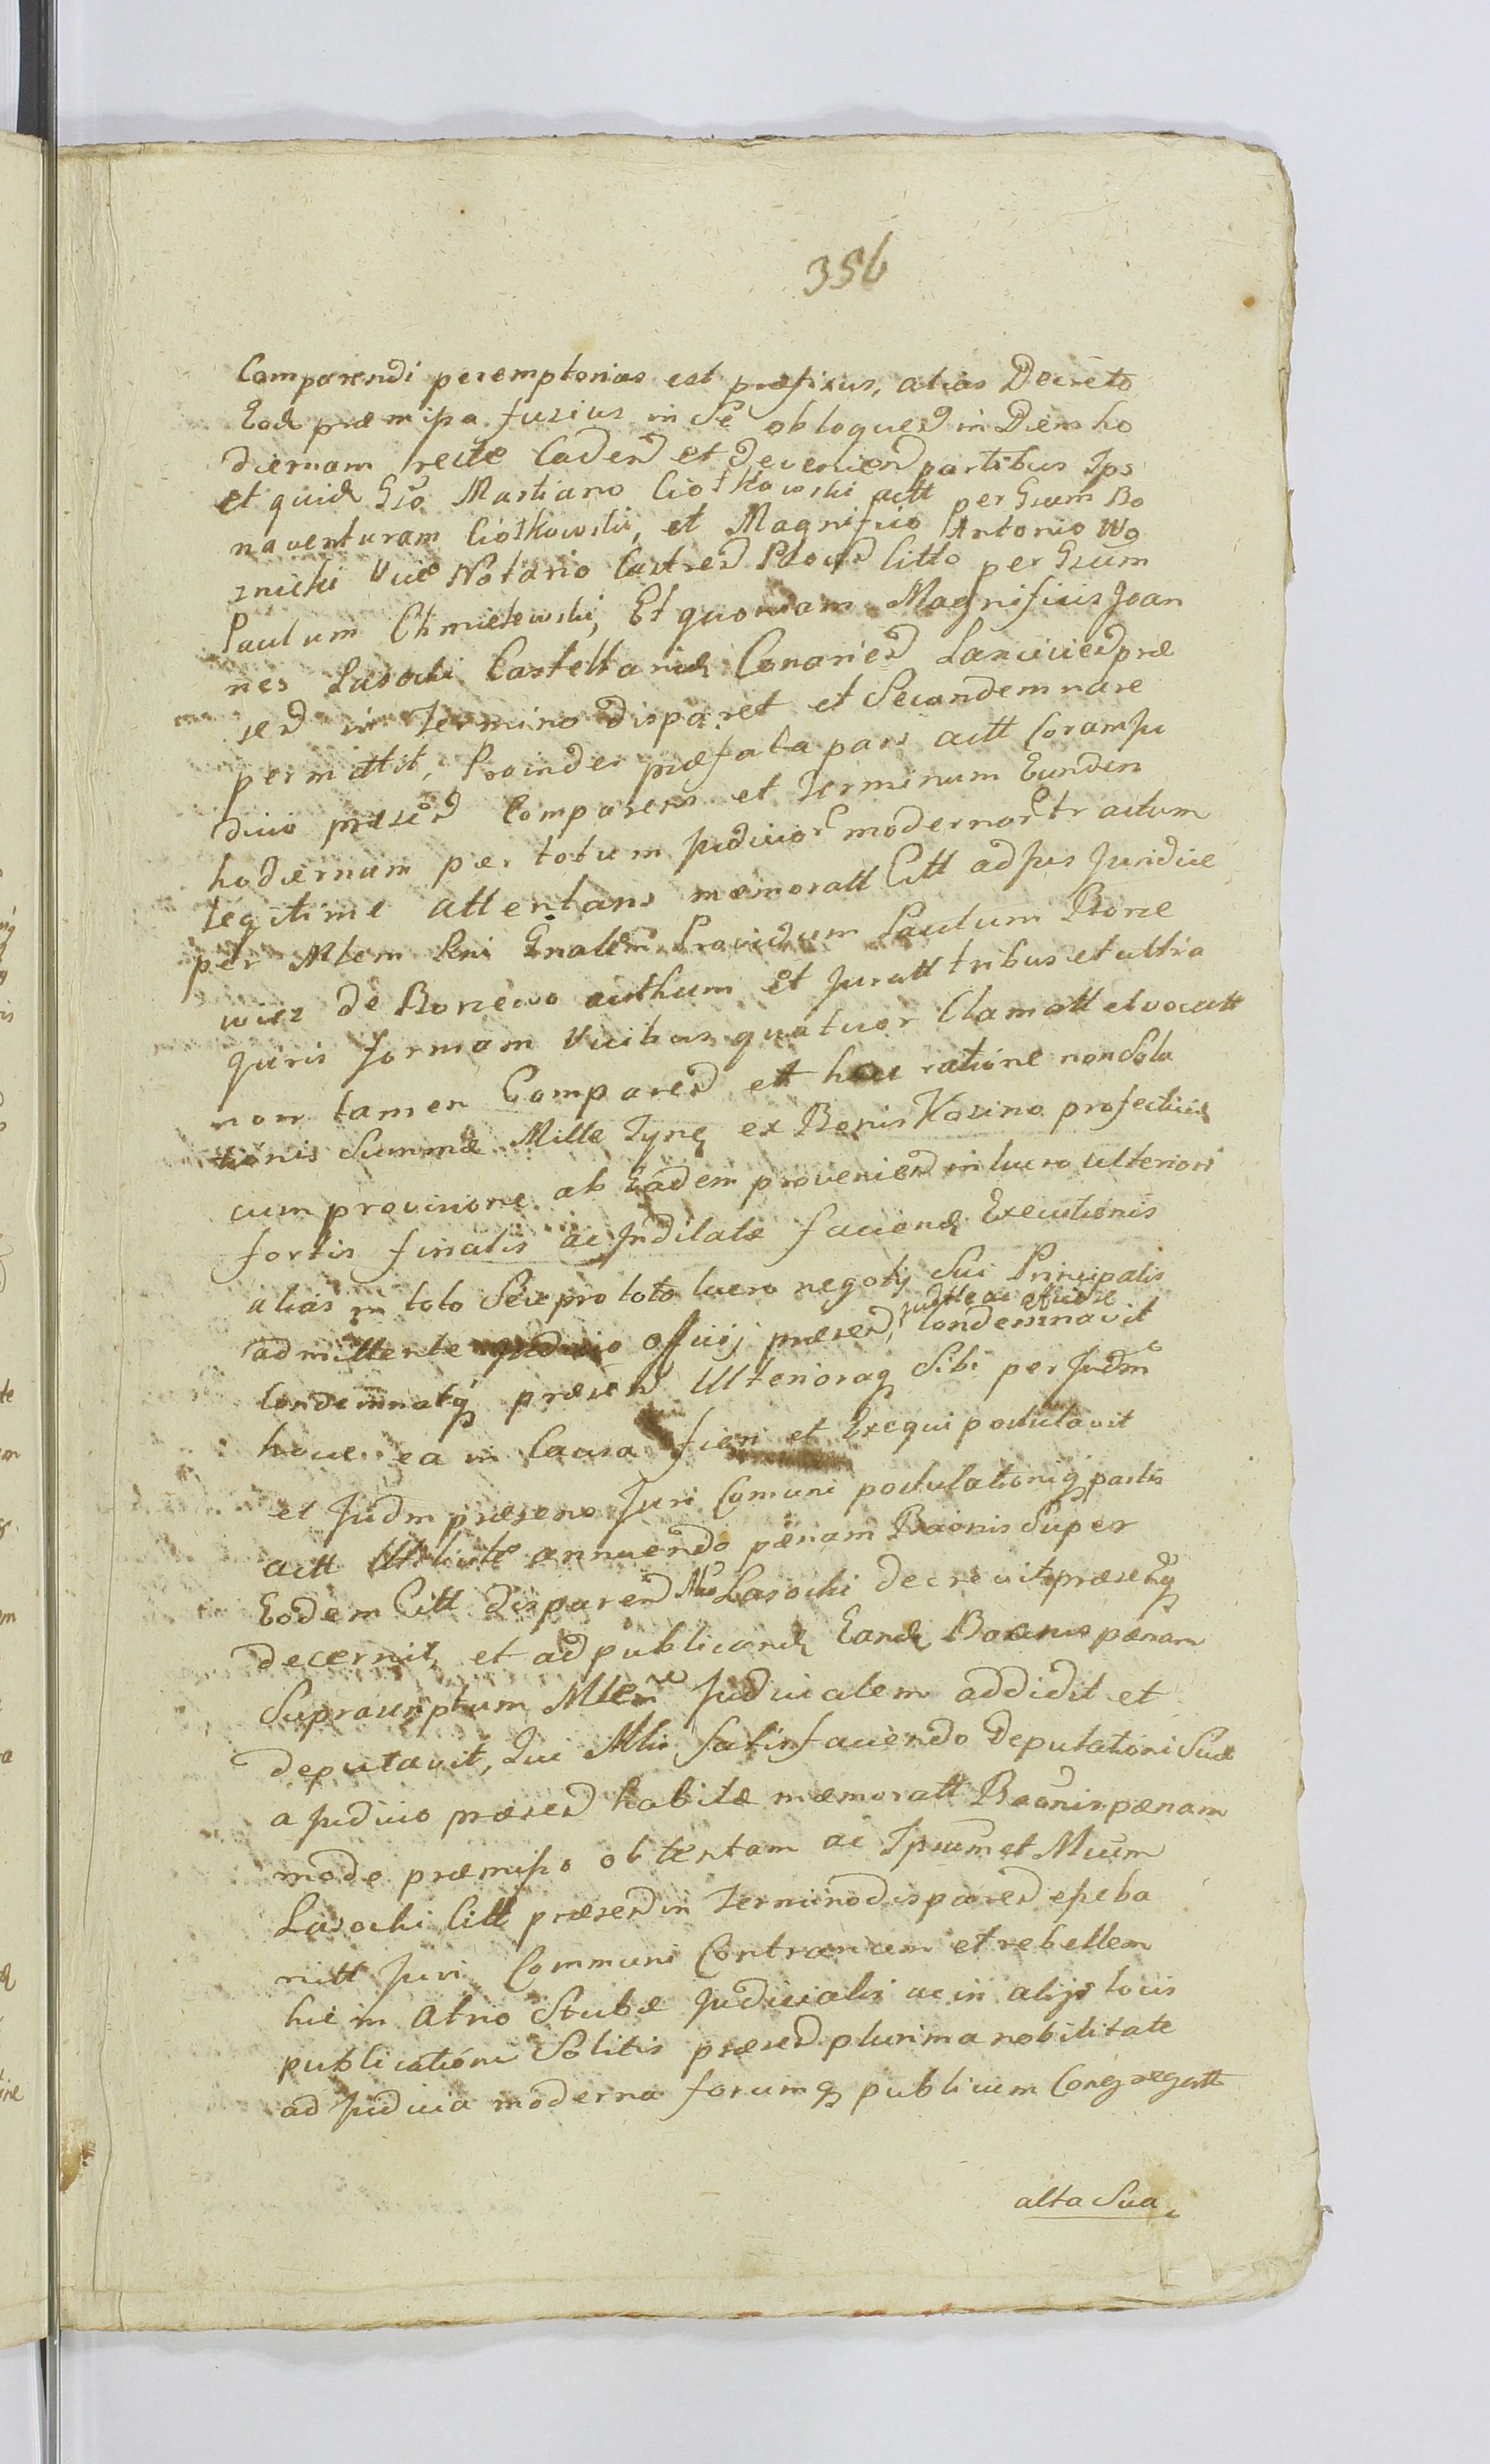 356
Comparendi peremptorias est præfixus, alias Decreto
Eod præmisso fusius in Se obloquen in Diem ho
diernam recte Caden et devenien partibus Ips
et quid Gso Martiano Ciołkowski actt per Gsum Bo
naventuram Ciołkowski, et Magnifico Antonio Wo
znicki Vice Notario Castren Plocen Citto per Gsum
Paulum Chmielewski, Et quoniam Magnificus Joan
nes Lasocki Castellanid Conarien Lancicien præ
sen in Termino disparet et Secondemnare
permittit, Proinde præfata pars actt Coram Ju
dicio præsen Comparens et Terminum Eunden
hodiernum per totum Judicior modernor tractum
legitime attentans memoratt Citt ad Jus Juridice
per Mlem Rni Gnalem Providum Paulum Bone
wicz de Bonewo authum et Juratt tribus et ultra
Juris formam Vicibus quatuor Clamatt et vocatt
non tamen Comparen et hac ratione non Solu
tionis Summæ Mille Tynf ex Bonis Kosino profectiud
cum provisione ab Eadem provenien in lucro ulteriori
fortis finalis ac Indilatæ faciend Executionis
alias in toto Seu pro toto lucro negotij Sui Principalis
admittente Judicio officij præsen, Condemnavit
Condemnatq præsen Ulterioraq Sibi per Judm
hocce ea in Causa fieri et Exequi postulavit
et Judm præsens Juri Comuni postulationiq partis
actt annuendo pænam Banis Super
Eodem Citt disparen Mco Lasocki decrevit præsentq
decernit, et ad publicand Eand Banis pænam
Suprascriptum Mlem Judicialem addidit et
deputavit, Qui Mlis satisfaciendo Deputationi Suæ
a Judicio præsen habitæ memoratt Banis pænam
mode præmisso obtentam ac Ipsum et Mcum
Lasocki Citt præsen in Termino disparen esse ba
nitt Juri Communi Contrarium et rebellem
hic in Atrio Stubæ Judicialis ac in alijs locis
publicationi Solitis præsen plurima nobilitate
ad Judicia moderna forumq publicum Congregatt
alta Sua